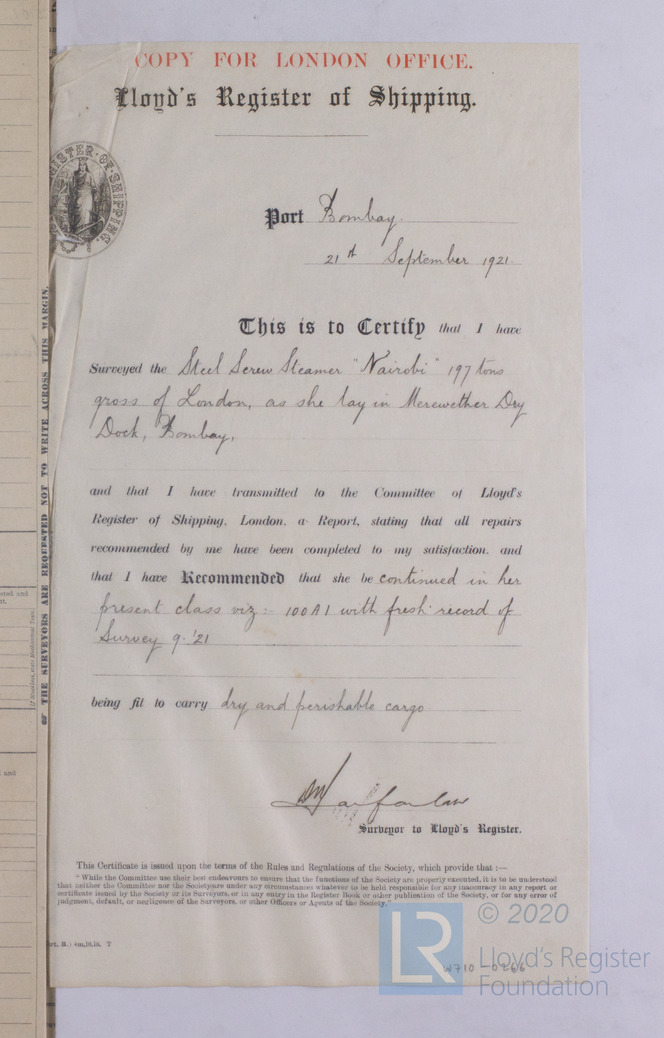 COPY FOR LONDON OFFICE.
Lloyd's Register of Shipping.
REGISTER·OF·SHIPPING.
Port Bombay.
21st September 1921.
This is to Certify that I have
Surveyed the Steel Screw Steamer "Nairobi" 197 tons
gross of London, as she lay in Merewether Dry
Dock, Bombay.
and that I have transmitted to the Committee of Lloyd's
Register of Shipping, London, a Report, stating that all repairs
recommended by me have been completed to my satisfaction, and
that I have Recommended that she be continued in her
present class viz:- 100A1 with fresh record of
Survey 9.'21
being fit to carry dry and perishable cargo
Surveyor to Lloyd's Register.
This Certificate is issued upon the terms of the Rules and Regulations of the Society, which provide that :—
"While the Committee use their best endeavours to ensure that the functions of the Society are properly executed, it is to be understood
that neither the Committee nor the Society are under any circumstances whatever to be held responsible for any inaccuracy in any report or
certificate issued by the Society or its Surveyors, or in any entry in the Register Book or other publication of the Society, or for any error of
judgment, default, or negligence of the Surveyors, or other Officers or Agents of the Society."
W710-0266
THE SURVEYORS ARE REQUESTED NOT TO WRITE ACROSS THIS MARGIN.
LR
© 2020
Lloyd's Register
Foundation